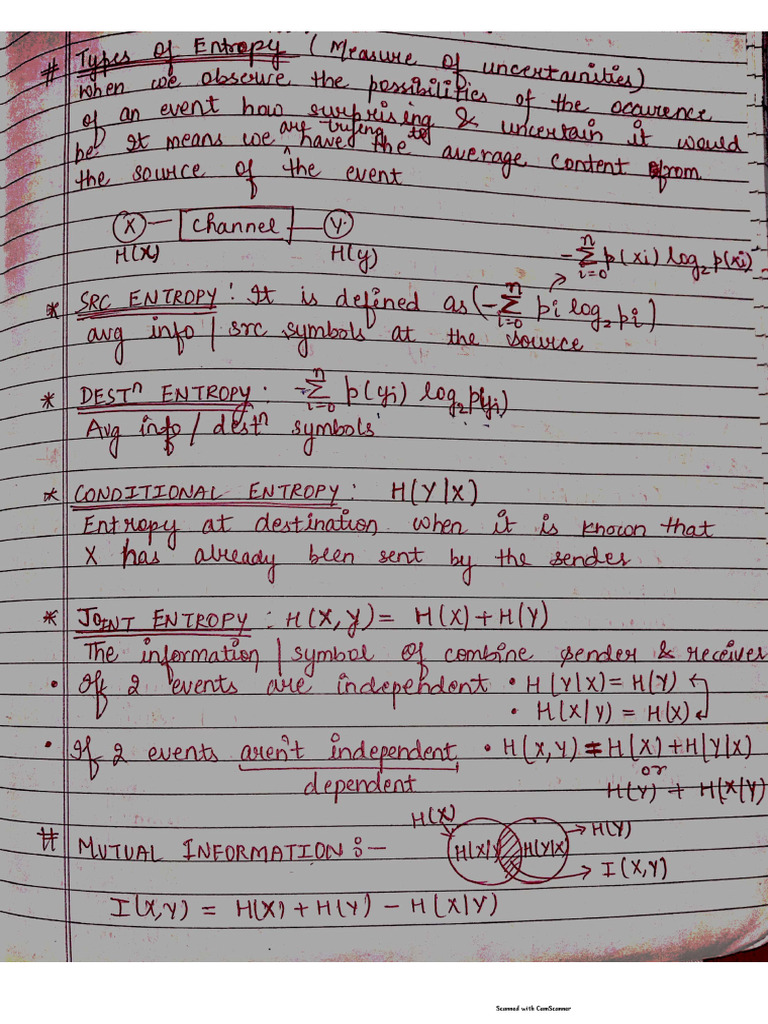 # Types of Entropy (Measure of uncertainities)
When we observe the possibilities of the occurence
of an event how surprising & uncertain it would
be. It means we are trying to have the average content from
the source of the event
X — Channel — Y
H(X) H(y)
-∑_{i=0}^{n} p(xi) log₂ p(xi)
* SRC ENTROPY : It is defined as (-∑_{i=0}^{n} pi log₂ pi)
avg info / src symbols at the source
* DESTⁿ ENTROPY : -∑_{i=0}^{n} p(yi) log₂ p(yi)
Avg info / destⁿ symbols
* CONDITIONAL ENTROPY : H(Y|X)
Entropy at destination when it is known that
X has already been sent by the sender
* JOINT ENTROPY : H(X,y) = H(X) + H(Y)
The information / symbol of combine sender & receiver
• If 2 events are independent • H(Y|X) = H(Y)
• H(X|Y) = H(X)
• If 2 events aren't independent • H(X,Y) = H(X) + H(Y|X)
dependent
or
H(Y) + H(X|Y)
# MUTUAL INFORMATION :-
H(X)
H(X|Y) H(Y|X)
H(Y)
I(X,Y)
I(X,Y) = H(X) + H(Y) - H(X|Y)
Scanned with CamScanner